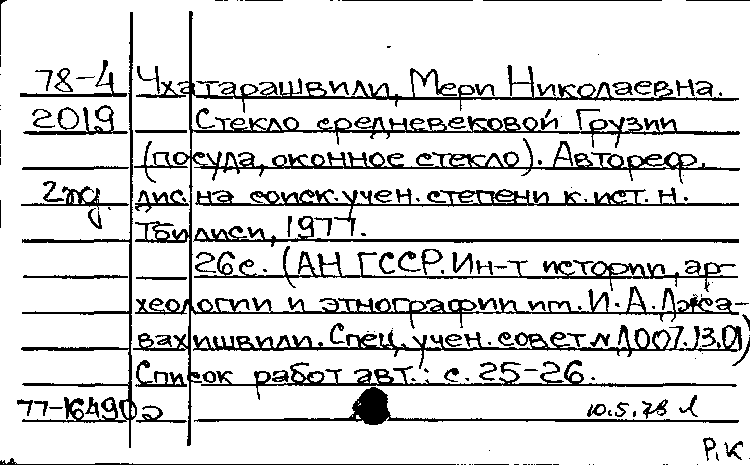 78-4 Чхатарашвили, Мери Николаевна.
2019 Стекло средневековой Грузии
(посуда, оконное стекло). Автореф.
дис. на соиск. учен. степени к. ист. н.
Тбилиси, 1977.
26 с. (АН ГССР. Ин-т истории, ар-
хеологии и этнографии им. И. А. Джа-
вахишвили. Спец. учен. совет № Д007.13.01)
Список работ авт.: с. 25-26.
77-16490 10.5.78
Р.К.